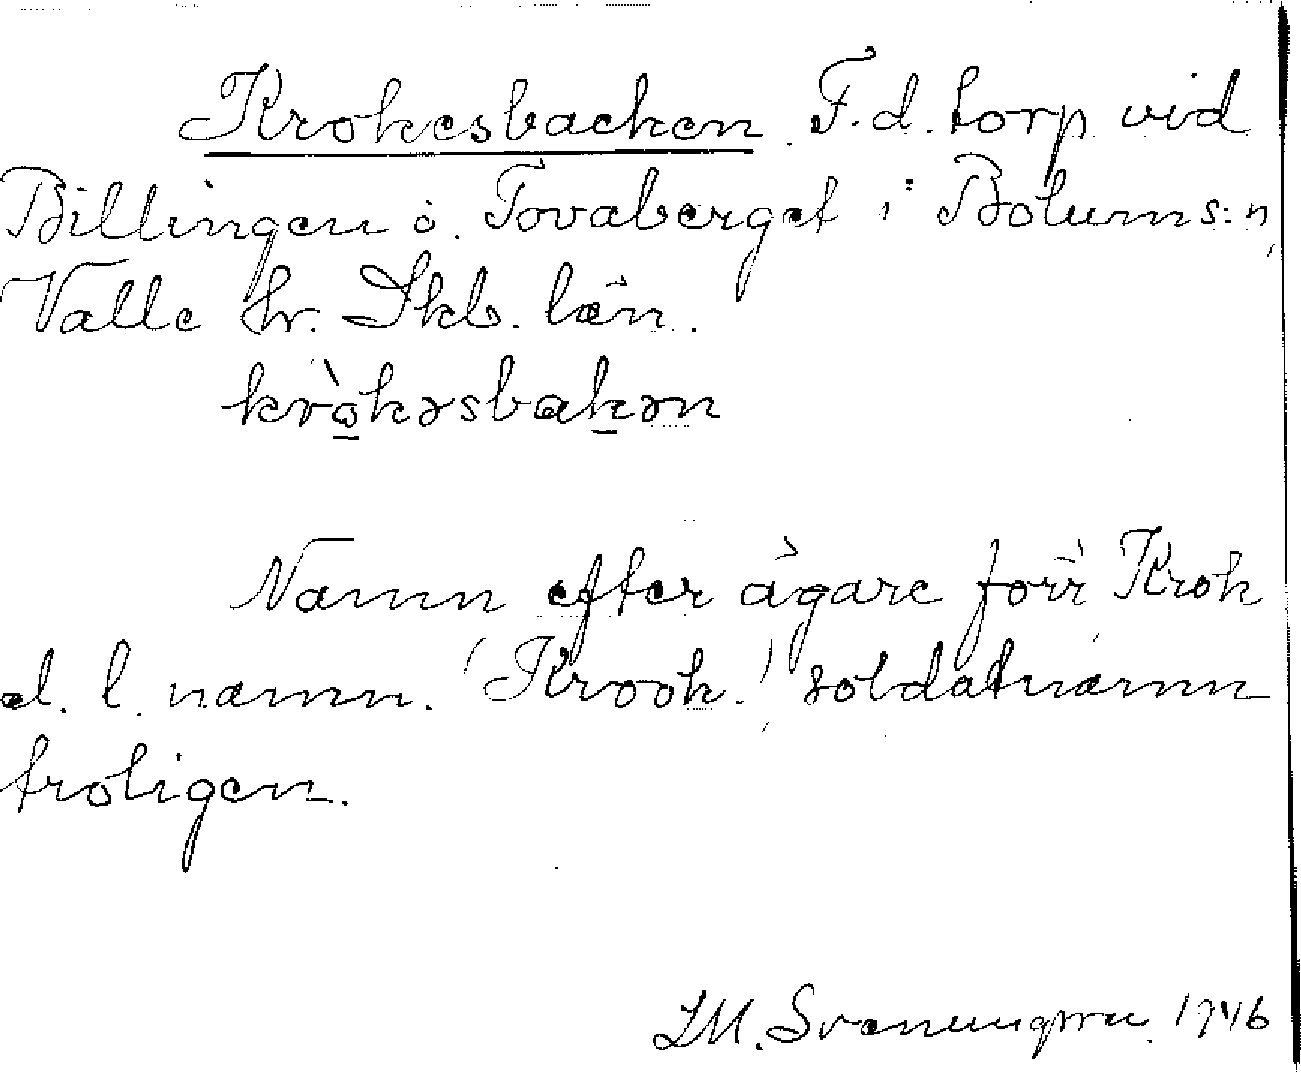 Krokesbacken F.d. torp vid
Billingen o. Tovaberget i Bolums:n,
Valle hr. Skb. län.
kròkəsbakən
Namn efter ägare förr Krok
d. l. namn. (Krook.) soldatnamn
troligen.
LM. Svanungsson 1946